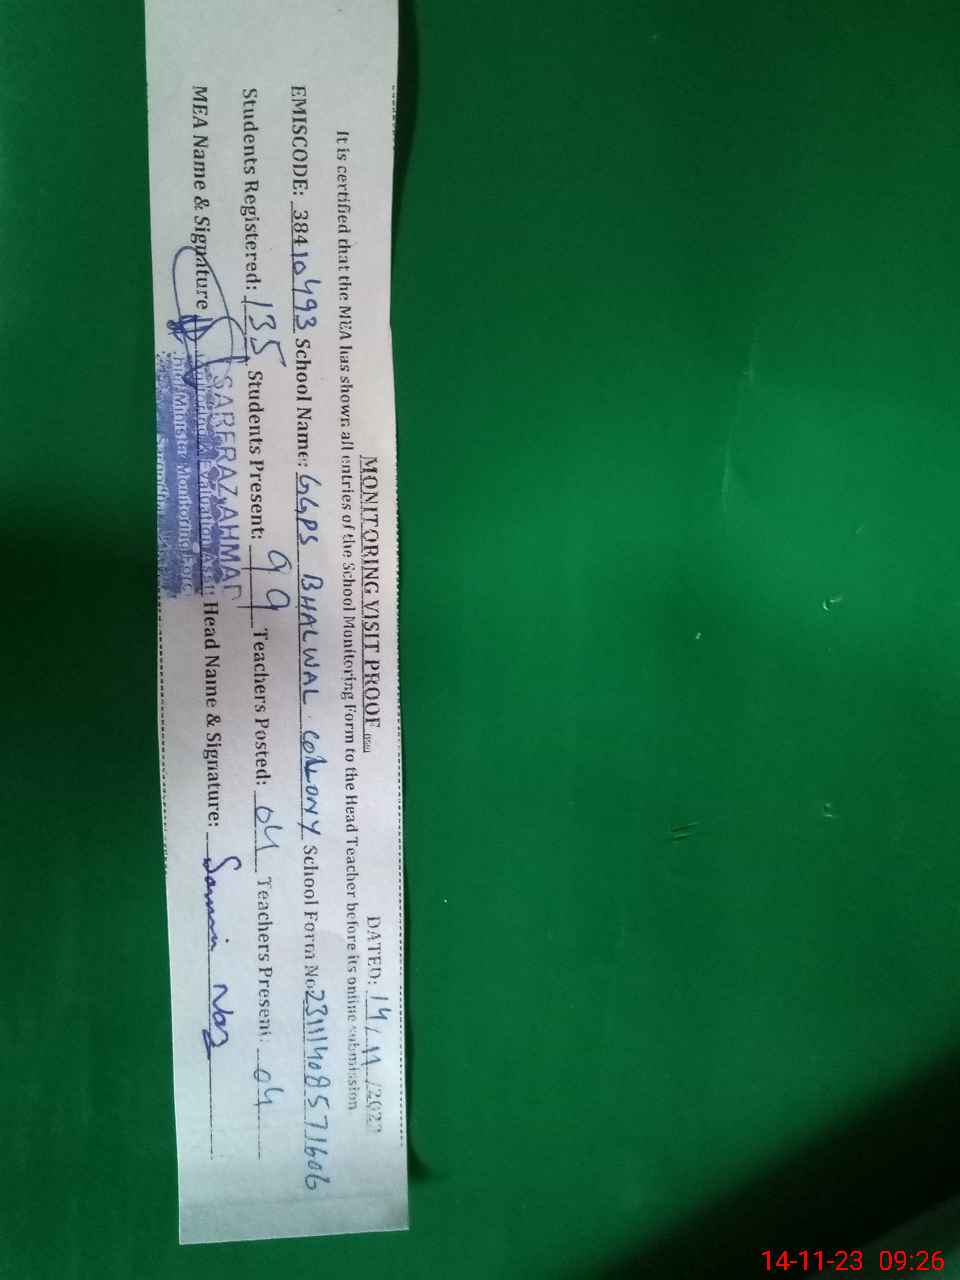 MONITORING VISIT PROOF
DATED: 14/11/2023
It is certified that the MEA has shown all entries of the School Monitoring Form to the Head Teacher before its online submission.
EMISCODE: 38410493 School Name: GGPS BHALWAL COLONY School Form No: 23111408571606
Students Registered: 135 Students Present: 99 Teachers Posted: 04 Teachers Present: 04
MEA Name & Signature Head Name & Signature:
SARFRAZ AHMAD
Monitoring & Evaluation Asst:
Chief Minister Monitoring Force
Sargodha
14-11-23 09:26